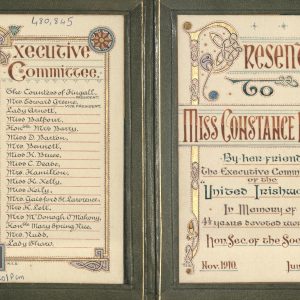 480,845
Executive
Committee.
The Countess of Fingall.
PRESIDENT.
Mrs Edward Greene.
VICE PRESIDENT.
Lady Arnott.
Miss Balfour.
Honble Mrs Barry.
Miss D. Barton.
Mrs Bennett.
Miss H. Bruce.
Miss C. Deane.
Mrs. Hamilton.
Miss H. Kelly.
Miss Reily.
Mrs Gaisford St. Lawrence.
Mrs R. Lett.
Mrs McDonagh O'Mahony.
Honble Mary Spring Rice.
Mrs Rudd.
Lady Shaw.
Presen
To
Miss Constance
By her friend
The Executive Commi
of the
United Irishwo
In Memory of
4½ years devoted wor
Hon. Sec. of the Soc
Nov. 1910.
Jun